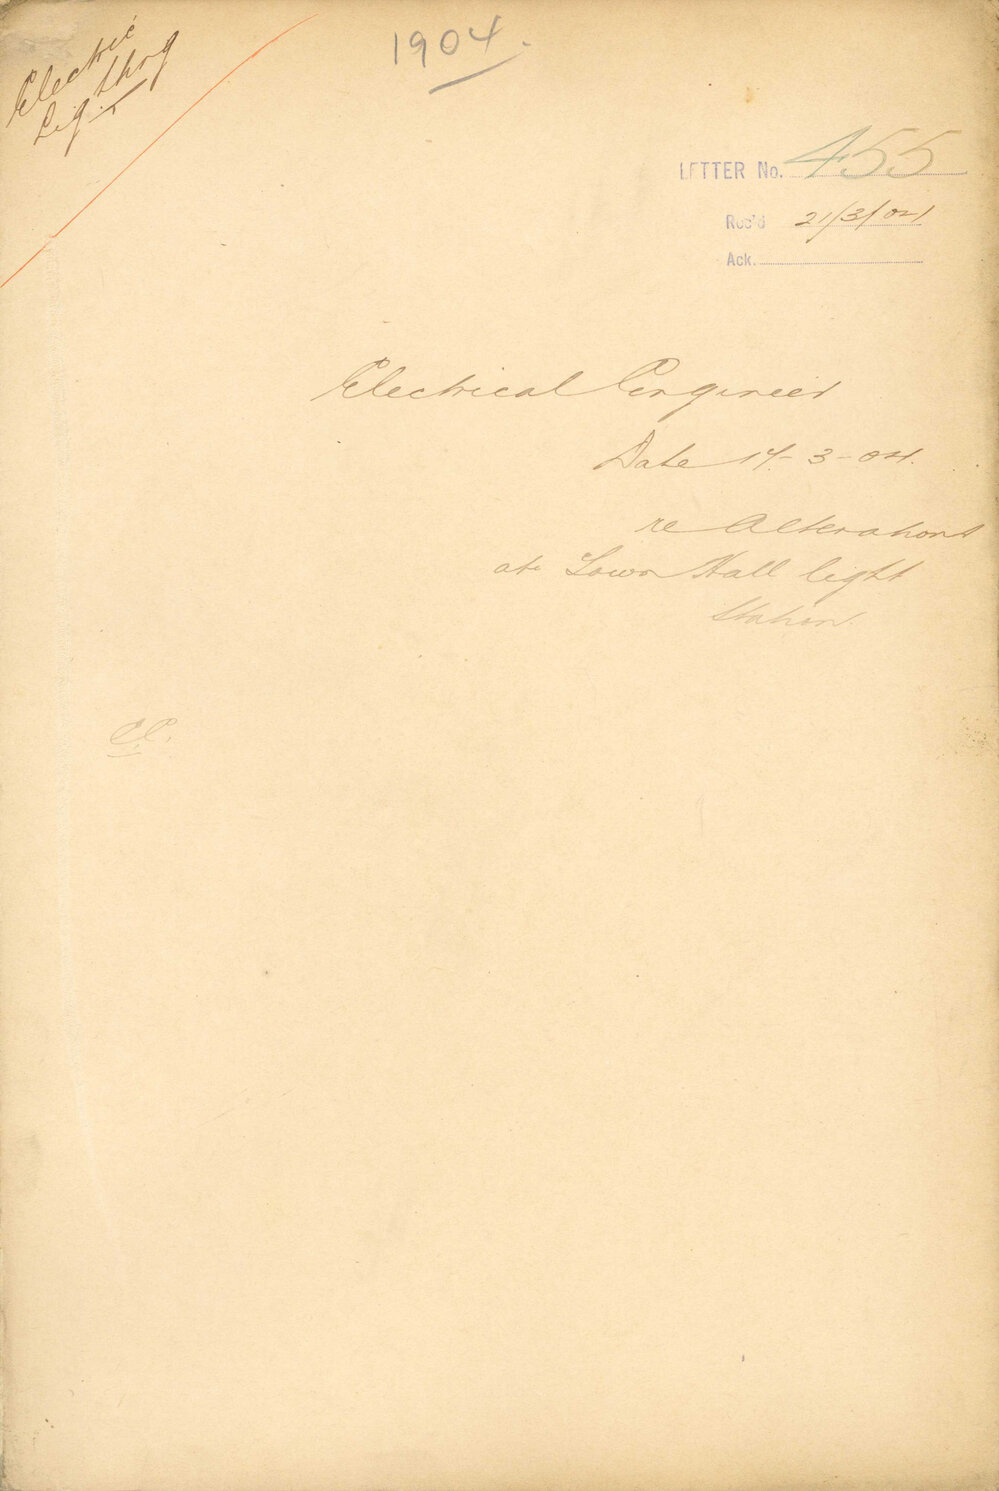 Electric
Lighting
1904.
LETTER No. 455
Rec'd 21/3/04
Ack.
Electrical Engineer
Date 17-3-04.
re Alterations
at Town Hall light
Station.
CC.